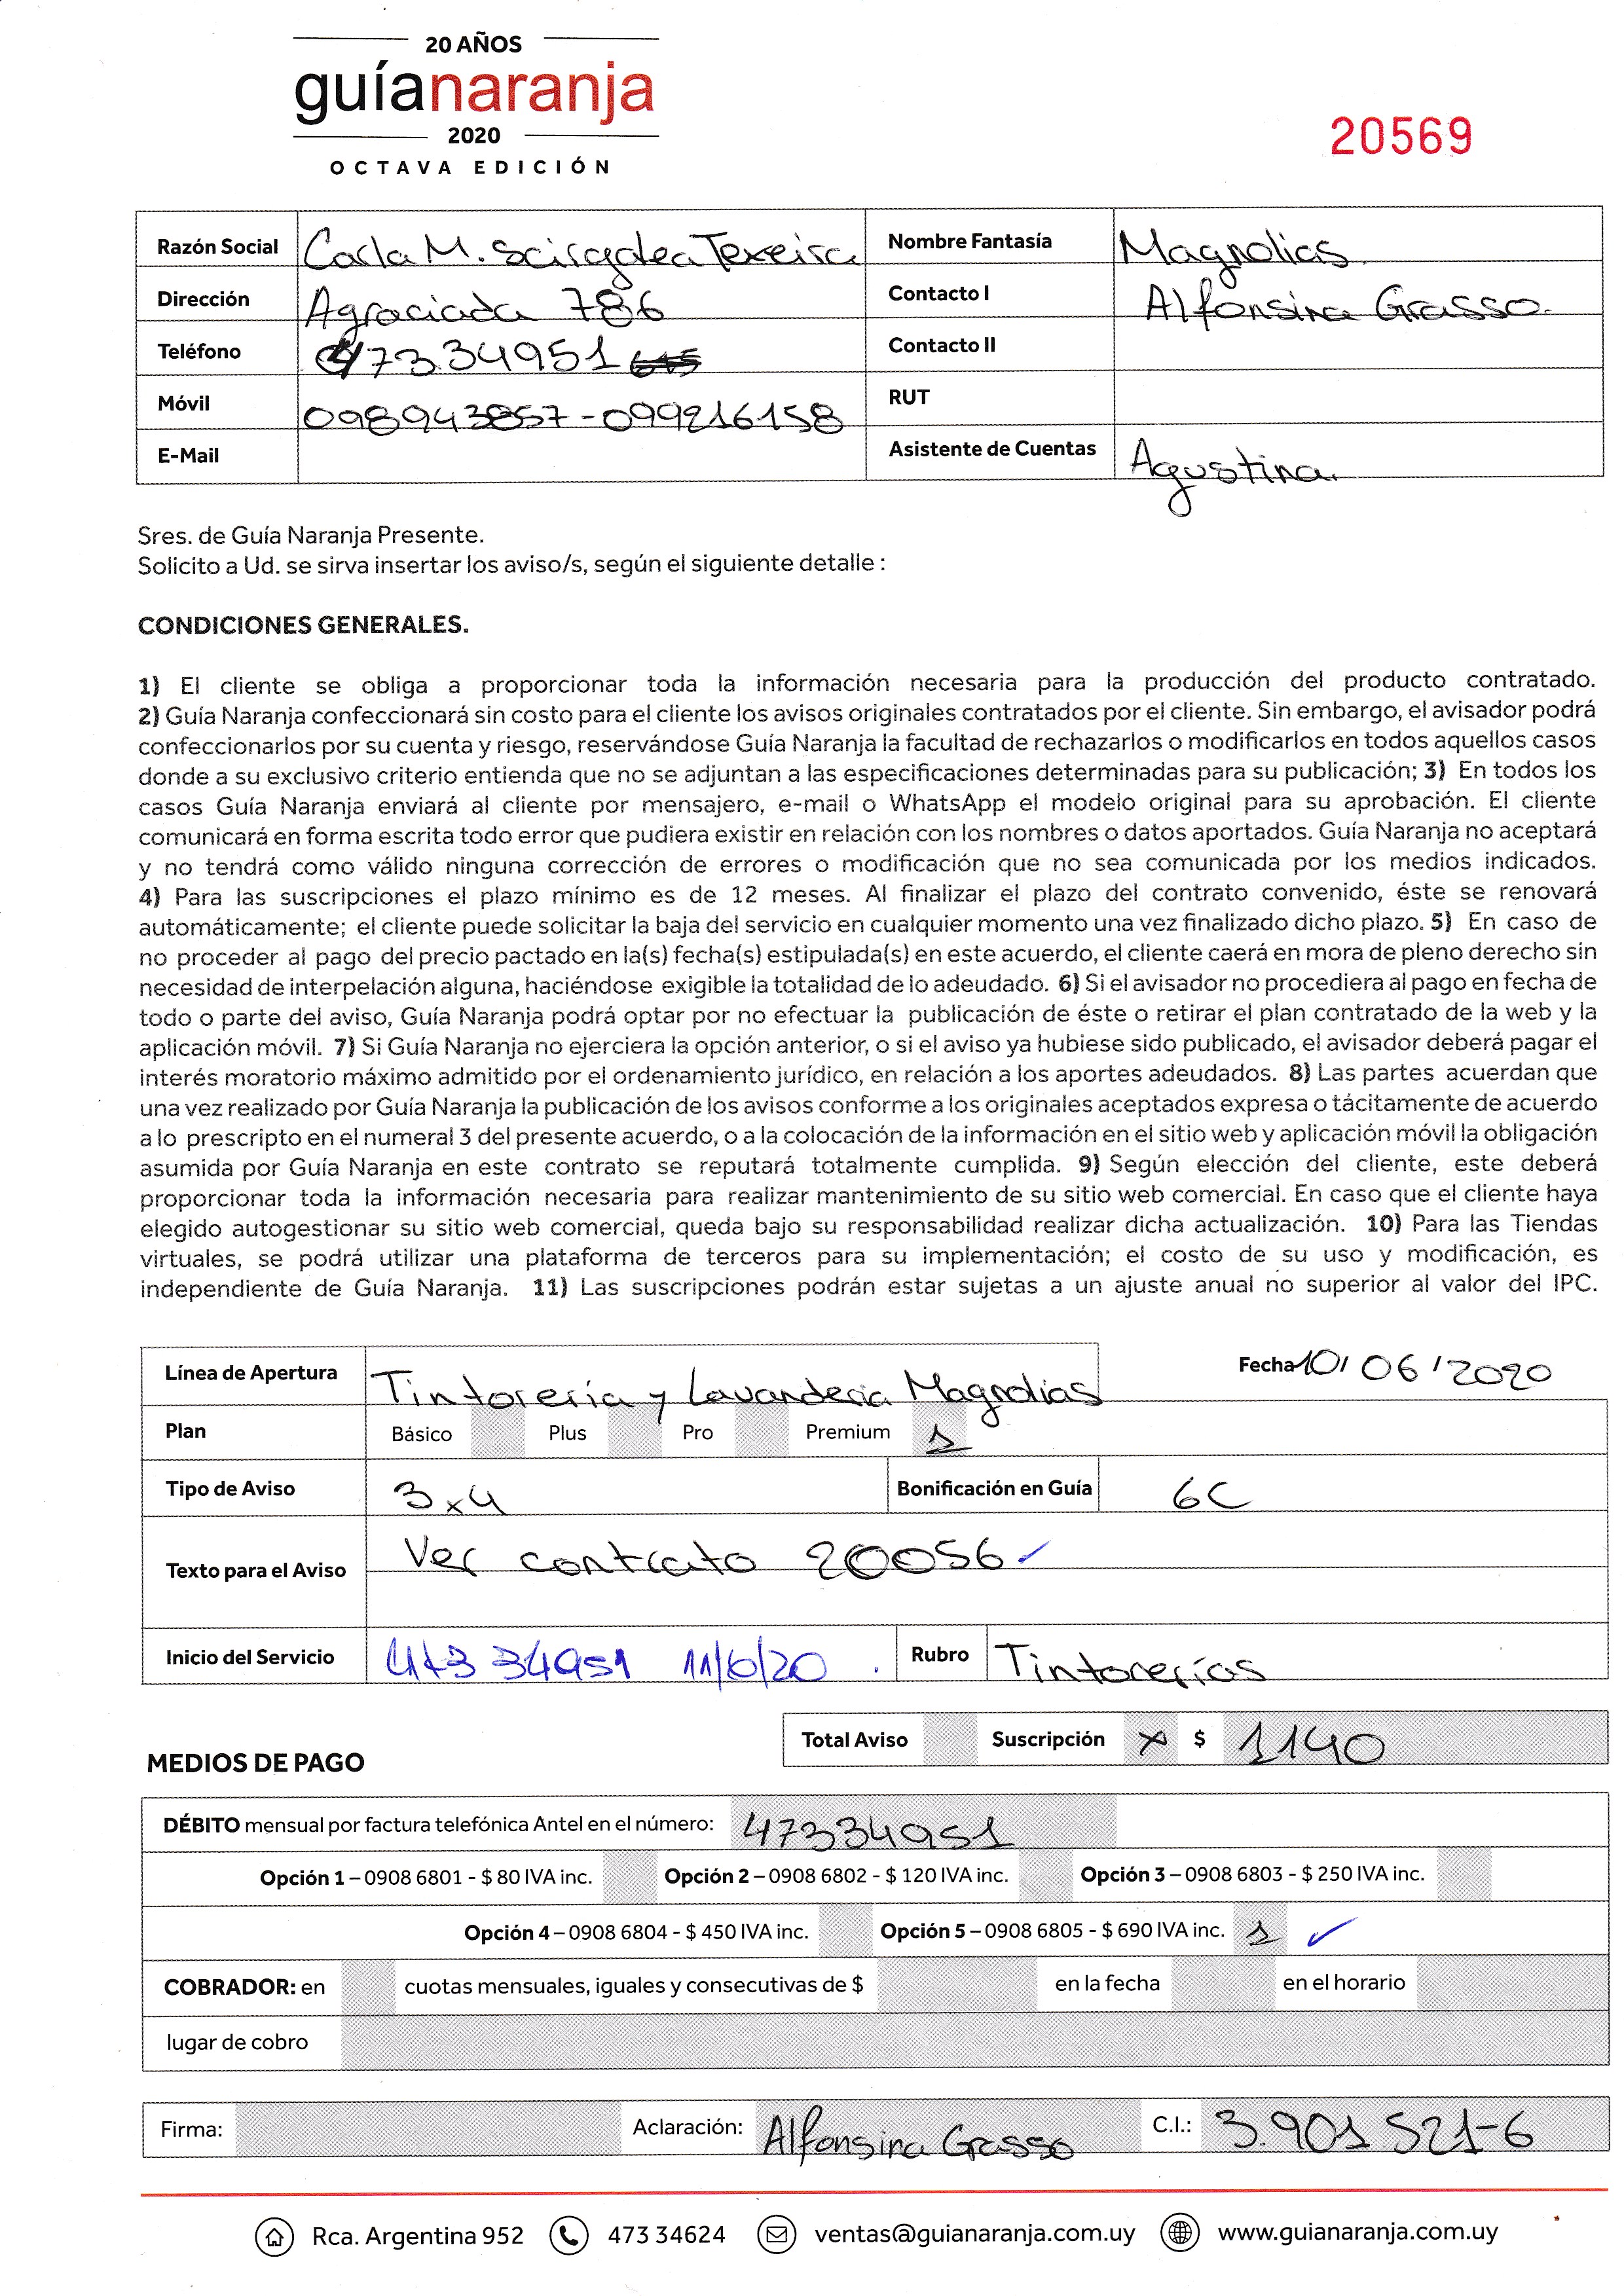 20 AÑOS
guíanaranja
2020
OCTAVA EDICIÓN
20569
Razón Social Carla M. Texeira Nombre Fantasía Magnolias
Dirección Agraciada 786 Contacto I Alfonsina Grasso.
Teléfono 47334951 Contacto II
Móvil 098943857-099216158 RUT
E-Mail Asistente de Cuentas Agustina.
Sres. de Guía Naranja Presente.
Solicito a Ud. se sirva insertar los aviso/s, según el siguiente detalle :
CONDICIONES GENERALES.
1) El cliente se obliga a proporcionar toda la información necesaria para la producción del producto contratado.
2) Guía Naranja confeccionará sin costo para el cliente los avisos originales contratados por el cliente. Sin embargo, el avisador podrá
confeccionarlos por su cuenta y riesgo, reservándose Guía Naranja la facultad de rechazarlos o modificarlos en todos aquellos casos
donde a su exclusivo criterio entienda que no se adjuntan a las especificaciones determinadas para su publicación; 3) En todos los
casos Guía Naranja enviará al cliente por mensajero, e-mail o WhatsApp el modelo original para su aprobación. El cliente
comunicará en forma escrita todo error que pudiera existir en relación con los nombres o datos aportados. Guía Naranja no aceptará
y no tendrá como válido ninguna corrección de errores o modificación que no sea comunicada por los medios indicados.
4) Para las suscripciones el plazo mínimo es de 12 meses. Al finalizar el plazo del contrato convenido, éste se renovará
automáticamente; el cliente puede solicitar la baja del servicio en cualquier momento una vez finalizado dicho plazo. 5) En caso de
no proceder al pago del precio pactado en la(s) fecha(s) estipulada(s) en este acuerdo, el cliente caerá en mora de pleno derecho sin
necesidad de interpelación alguna, haciéndose exigible la totalidad de lo adeudado. 6) Si el avisador no procediera al pago en fecha de
todo o parte del aviso, Guía Naranja podrá optar por no efectuar la publicación de éste o retirar el plan contratado de la web y la
aplicación móvil. 7) Si Guía Naranja no ejerciera la opción anterior, o si el aviso ya hubiese sido publicado, el avisador deberá pagar el
interés moratorio máximo admitido por el ordenamiento jurídico, en relación a los aportes adeudados. 8) Las partes acuerdan que
una vez realizado por Guía Naranja la publicación de los avisos conforme a los originales aceptados expresa o tácitamente de acuerdo
a lo prescripto en el numeral 3 del presente acuerdo, o a la colocación de la información en el sitio web y aplicación móvil la obligación
asumida por Guía Naranja en este contrato se reputará totalmente cumplida. 9) Según elección del cliente, este deberá
proporcionar toda la información necesaria para realizar mantenimiento de su sitio web comercial. En caso que el cliente haya
elegido autogestionar su sitio web comercial, queda bajo su responsabilidad realizar dicha actualización. 10) Para las Tiendas
virtuales, se podrá utilizar una plataforma de terceros para su implementación; el costo de su uso y modificación, es
independiente de Guía Naranja. 11) Las suscripciones podrán estar sujetas a un ajuste anual no superior al valor del IPC.
Línea de Apertura Tintorería y Lavandería Magnolias Fecha 10/ 06 / 2020
Plan Básico Plus Pro Premium 1
Tipo de Aviso 3x4 Bonificación en Guía 6C
Texto para el Aviso Ver contrato 20056 ✓
Inicio del Servicio 473 34951 11/6/20 . Rubro Tintorerías
Total Aviso Suscripción x $ 1140
MEDIOS DE PAGO
DÉBITO mensual por factura telefónica Antel en el número: 47334951
Opción 1 – 0908 6801 - $ 80 IVA inc. Opción 2 – 0908 6802 - $ 120 IVA inc. Opción 3 – 0908 6803 - $ 250 IVA inc.
Opción 4 – 0908 6804 - $ 450 IVA inc. Opción 5 – 0908 6805 - $ 690 IVA inc. 1 ✓
COBRADOR: en cuotas mensuales, iguales y consecutivas de $ en la fecha en el horario
lugar de cobro
Firma: Aclaración: Alfonsina Grasso C.I.: 3.901 521-6
Rca. Argentina 952 473 34624 ventas@guianaranja.com.uy www.guianaranja.com.uy